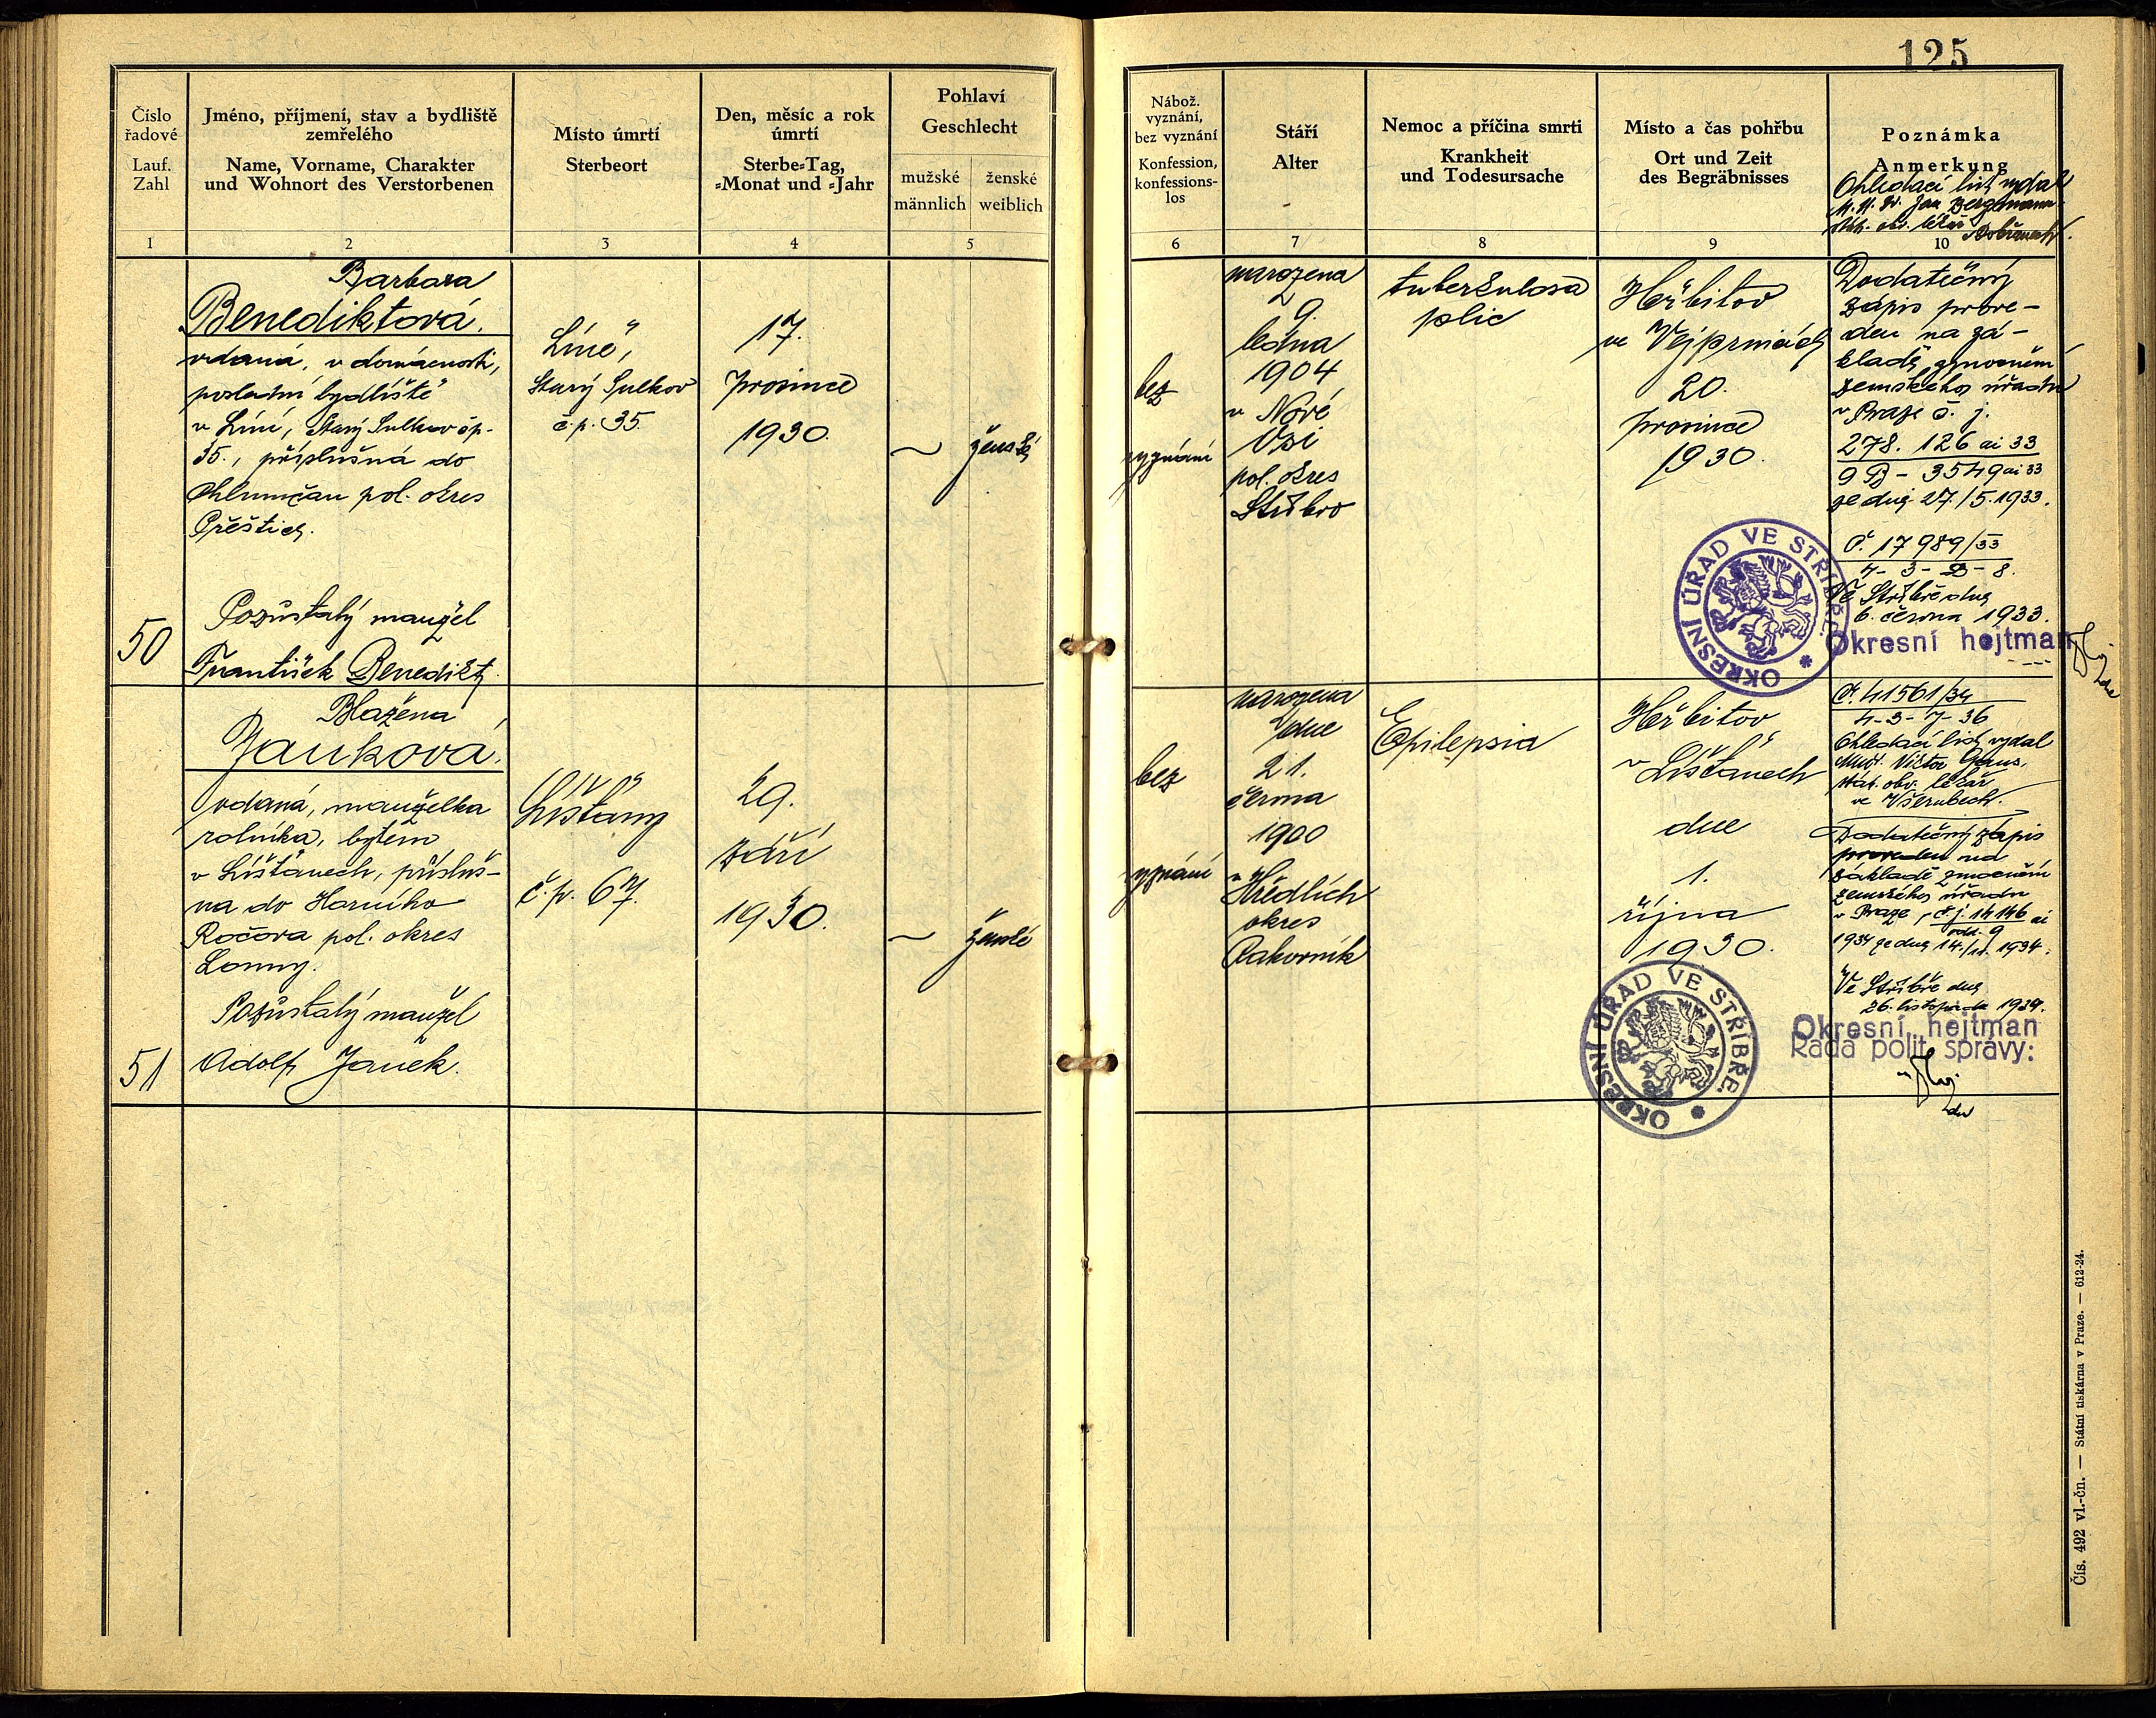 125
Číslo
řadové
Lauf.
Zahl
1
Jméno, příjmení, stav a bydliště
zemřelého
Name, Vorname, Charakter
und Wohnort des Verstorbenen
2
Místo úmrtí
Sterbeort
3
Den, měsíc a rok
úmrtí
Sterbe=Tag,
=Monat und =Jahr
4
Pohlaví
Geschlecht
mužské
männlich
ženské
weiblich
5
Nábož.
vyznání,
bez vyznání
Konfession,
konfessions-
los
6
Stáří
Alter
7
Nemoc a příčina smrti
Krankheit
und Todesursache
8
Místo a čas pohřbu
Ort und Zeit
des Begräbnisses
9
Poznámka
Anmerkung
10
Ohledací list vydal
Dr. Jan Bergmann
stát. obv. lékař
50
Barbara
Benediktová,
vdaná, v domácnosti,
poslední bydliště
v Líni, Starý Sulkov čp.
35., příslušná do
Chlumčan pol. okres
Přeštice.
Pozůstalý manžel
František Benedikt.
Líně,
Starý Sulkov
č.p. 35.
17.
prosince
1930.
ženské
bez
vyznání
narozena
9.
ledna
1904
v Nové
Vsi
pol. okres
Stříbro
tuberkulosa
plic
Hřbitov
ve Vejprnicích
20.
prosince
1930.
Dodatečný
zápis prove-
den na zá-
kladě zmocnění
zemského úřadu
v Praze č. j.
278.126 ai 33
9 B - 3549 ai 33
ze dne 27./5.1933.
Č. 17989/33
4-3-B-8.
Ve Stříbře dne
6. června 1933.
Okresní hejtman
OKRESNÍ ÚŘAD VE STŘÍBŘE.
51
Blažena
Janková,
vdaná, manželka
rolníka, bytem
v Líšťanech, přísluš-
ná do Horního
Ročova pol. okres
Louny.
Pozůstalý manžel
Adolf Janek.
Líšťany
č.p. 67.
29.
září
1930.
ženské
bez
vyznání
narozena
dne
21.
června
1900
v
Hředlích
okres
Rakovník
Epilepsia
Hřbitov
v Líšťanech
dne
1.
října
1930.
Č. 41561/34
4-3-7-36
Ohledací list vydal
MUDr. Victor
stát. obv. lékař
ve Všerubech.
Dodatečný zápis
proveden na
základě zmocnění
zemského úřadu
v Praze, č.j. 14146 ai
odd. 9
1934 ze dne 14./11. 1934.
Ve Stříbře dne
26. listopadu 1934.
Okresní hejtman
Rada polit. správy:
OKRESNÍ ÚŘAD VE STŘÍBŘE.
Čís. 492 vl.-čn. — Státní tiskárna v Praze. — 612-24.